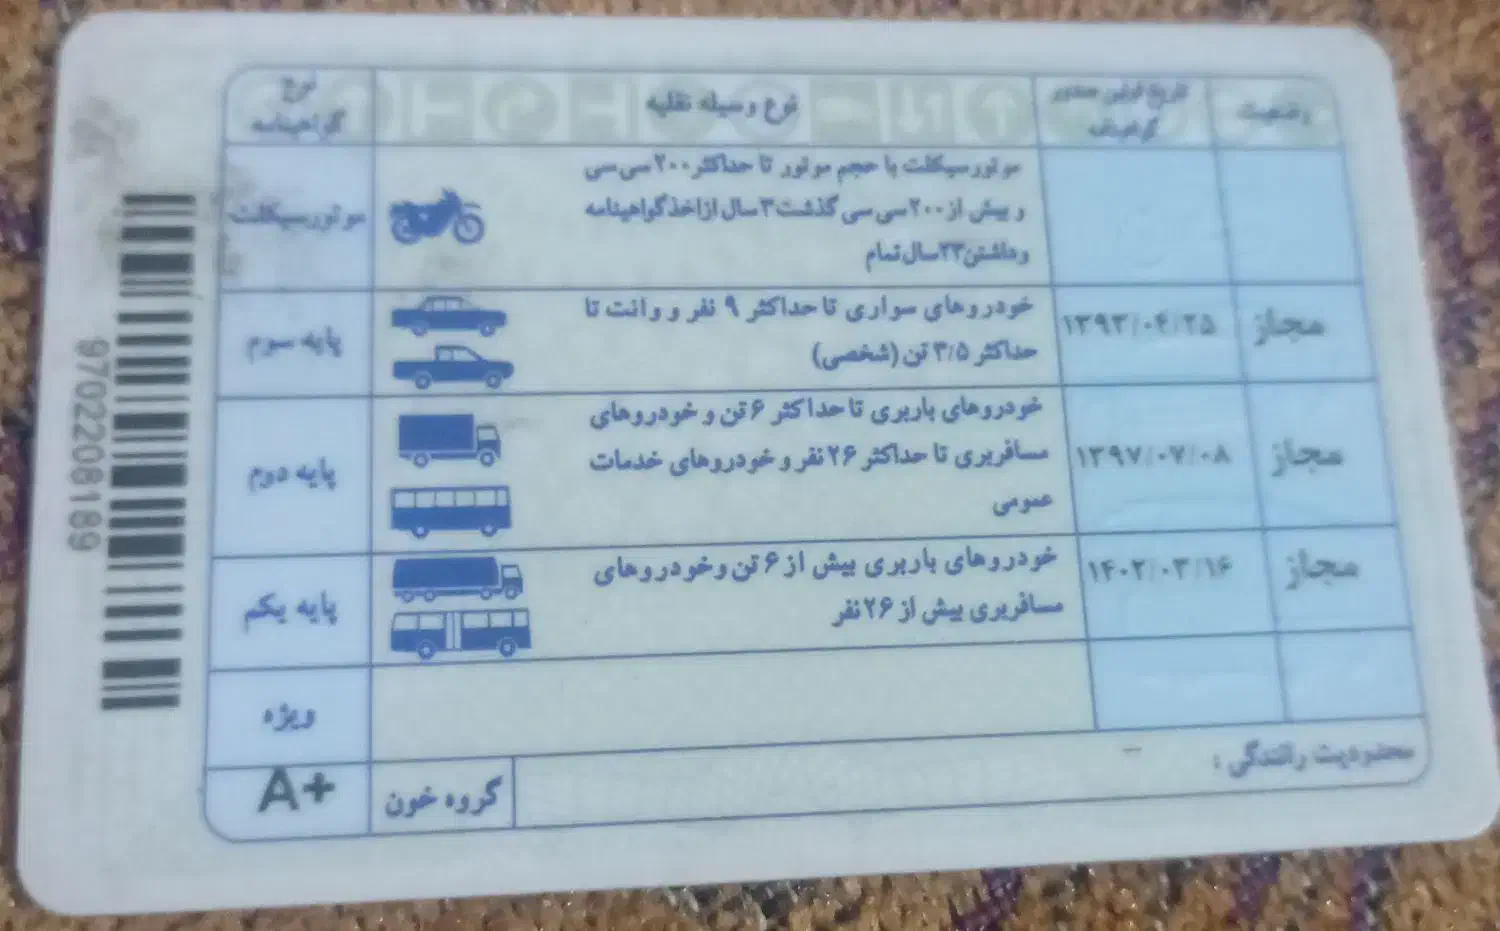 وضعیت
تاریخ اولین صدور
گواهینامه
نوع وسیله نقلیه
نوع
گواهینامه
موتورسیکلت با حجم موتور تا حداکثر ۲۰۰ سی سی
و بیش از ۲۰۰ سی سی گذشت ۳ سال از اخذ گواهینامه
و داشتن ۲۳ سال تمام
موتورسیکلت
مجاز
۱۳۹۳/۰۴/۲۵
خودروهای سواری تا حداکثر ۹ نفر و وانت تا
حداکثر ۳/۵ تن (شخصی)
پایه سوم
مجاز
۱۳۹۷/۰۷/۰۸
خودروهای باربری تا حداکثر ۶ تن و خودروهای
مسافربری تا حداکثر ۲۶ نفر و خودروهای خدمات
عمومی
پایه دوم
مجاز
۱۴۰۲/۰۳/۱۶
خودروهای باربری بیش از ۶ تن و خودروهای
مسافربری بیش از ۲۶ نفر
پایه یکم
ویژه
محدودیت رانندگی : -
گروه خون
A+
9702208189